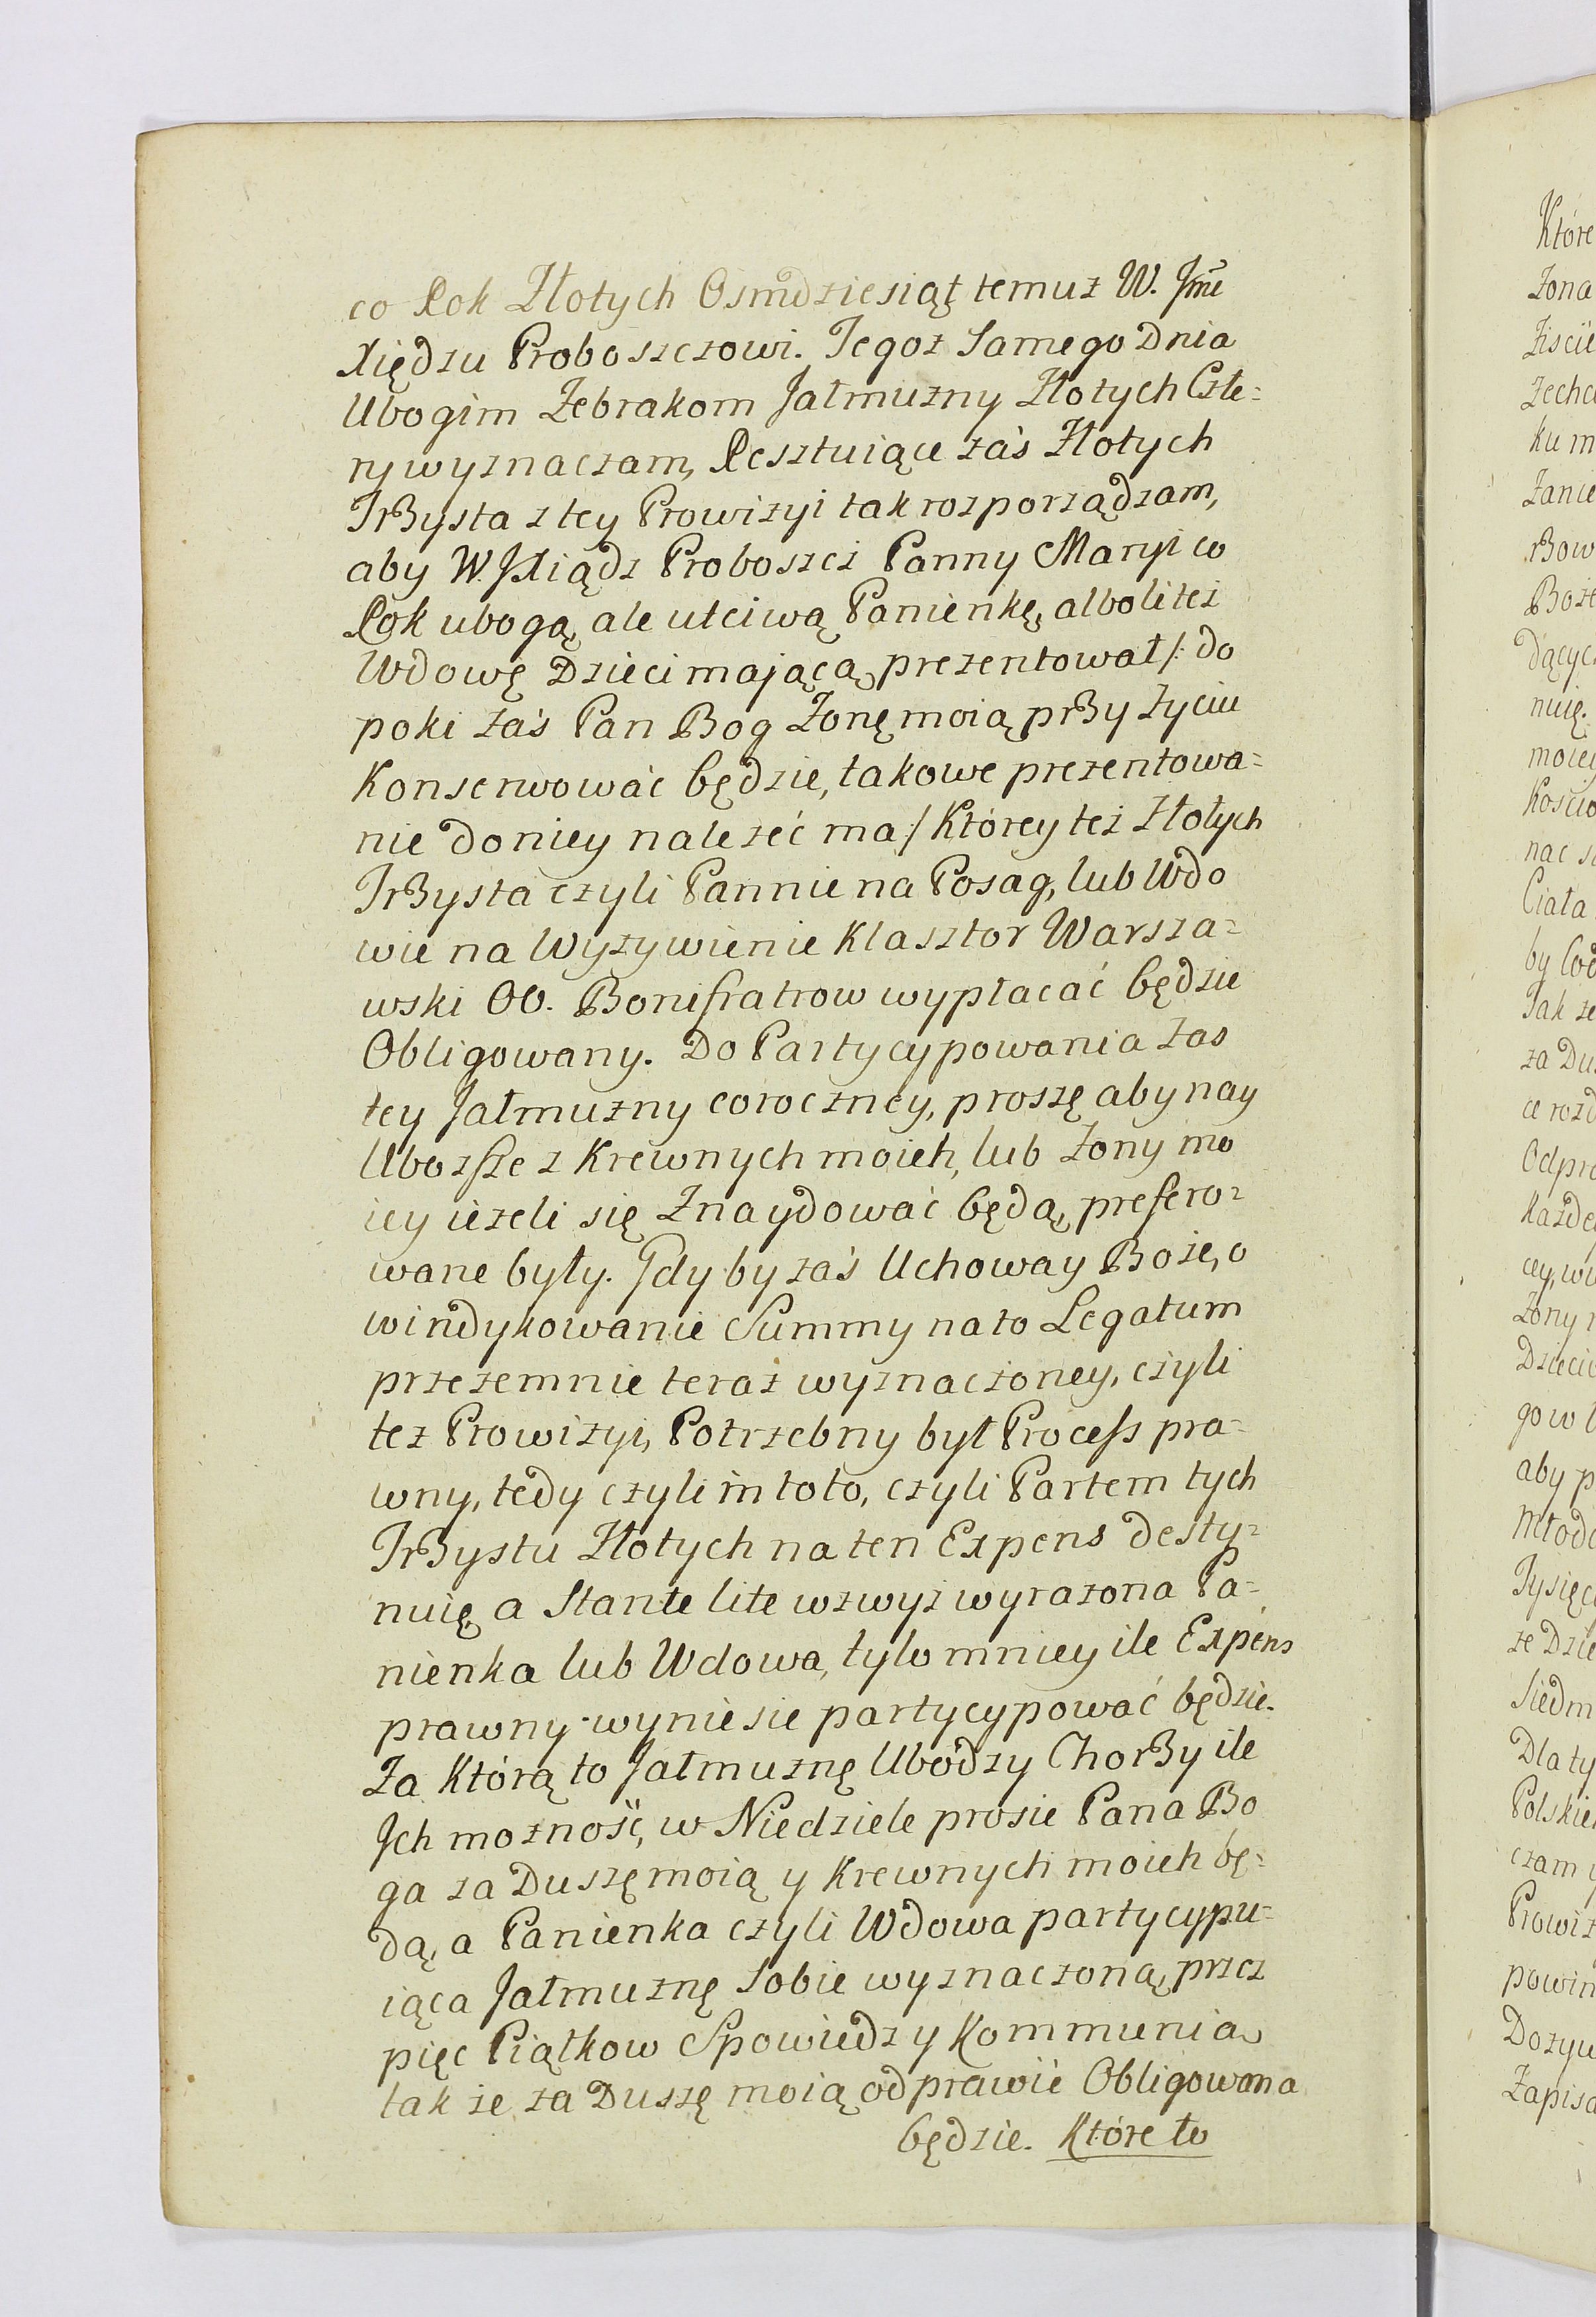 co Rok Złotych Osmdziesiąt temuz W. Jmć
Xiędzu Proboszczowi. Tegoz Samego Dnia
Ubogim Żebrakom Jałmuzny Złotych Czte=
ry wyznaczam, Resztuiące zaś Złotych
Trzysta z tey Prowizyi tak rozporządzam,
aby W. JXiądz Proboszcz Panny Maryi co
Rok ubogą, ale utciwą Panienkę, alboliteż
Wdowę Dzieci mającą, prezentował /: do
poki zaś Pan Bog Żonę moią przy życiu
Konserwować będzie, takowe prezentowa=
nie do niey należeć ma /: Którey też Złotych
Trzysta czyli Pannie na Posag, lub Wdo
wie na Wyżywienie Klasztor Warsza=
wski OO. Bonifratrow wypłacać będzie
Obligowany. Do Partycypowania zas
tey Jałmuzny coroczney, proszę aby nay
Ubozsze z Krewnych moich, lub Żony mo
iey ieżeli się Znaydować będą, prefero=
wane były. Gdyby zaś Uchoway Boże, o
windykowanie Summy na to Legatum
przezemnie teraz wyznaczoney, czyli
tez Prowizyi, Potrzebny był Process pra=
wny, tedy czyli in toto, czyli Partem tych
Trzystu Złotych na ten Expens desty=
nuię, a Stante lite wzwyż wyrażona Pa=
nienka lub Wdowa, tylo mniey ile Expens
prawny wyniesie partycypować będzie.
Za Którą to Jałmuznę Ubodzy Chorzy ile
Ich możność, w Niedziele prosie Pana Bo
ga za Duszę moią y Krewnych moich bę=
dą, a Panienka czyli Wdowa partycypu=
iąca Jałmuznę Sobie wyznaczoną, przez
pięc Piątkow Spowiedz y Kommunią
tak że za Duszę moią odprawić Obligowana
będzie. Które to